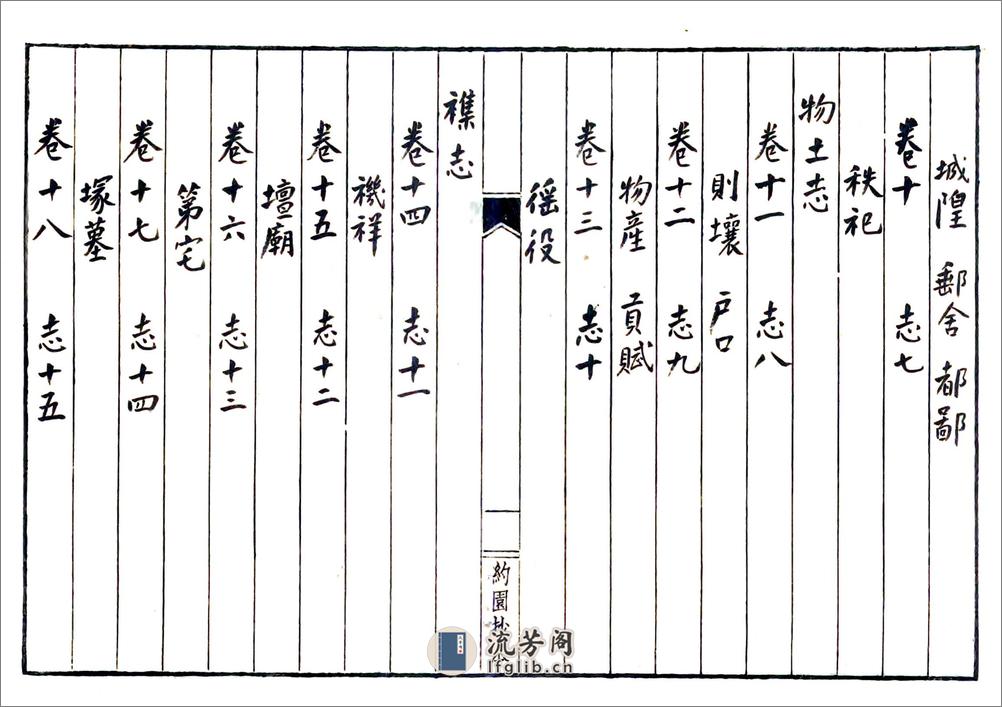 城隍 郵舍 都鄙
卷十 志七
秩祀
物土志
卷十一 志八
則壤 户口
卷十二 志九
物產 貢賦
卷十三 志十
徭役
約園抄
襍志
卷十四 志十一
禨祥
卷十五 志十二
壇廟
卷十六 志十三
第宅
卷十七 志十四
塚墓
卷十八 志十五
流芳阁
lfglib.ch